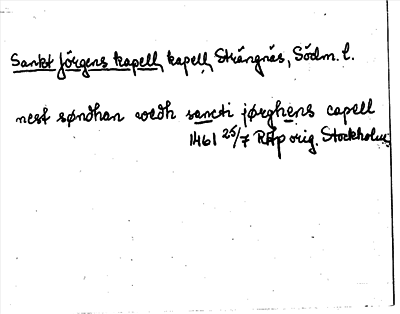 Sankt Jörgens kapell, kapell, Strängnäs, Södm. l.
nest søndhan wedh sancti jørghens capell
1461 25/7 RAp orig. Stockholm